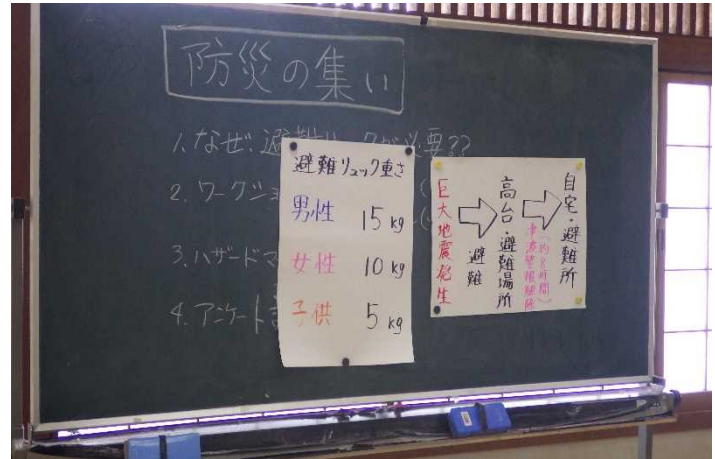 防災の集い
1.なぜ?避難リュックが必要??
2.ワークショ
3.ハザードマ
4.アンケート
避難リュック重さ
男性 15kg
女性 10kg
子供 5kg
巨大地震発生
避難
高台・避難場所
(約8時間)
津波警報解除
自宅・避難所